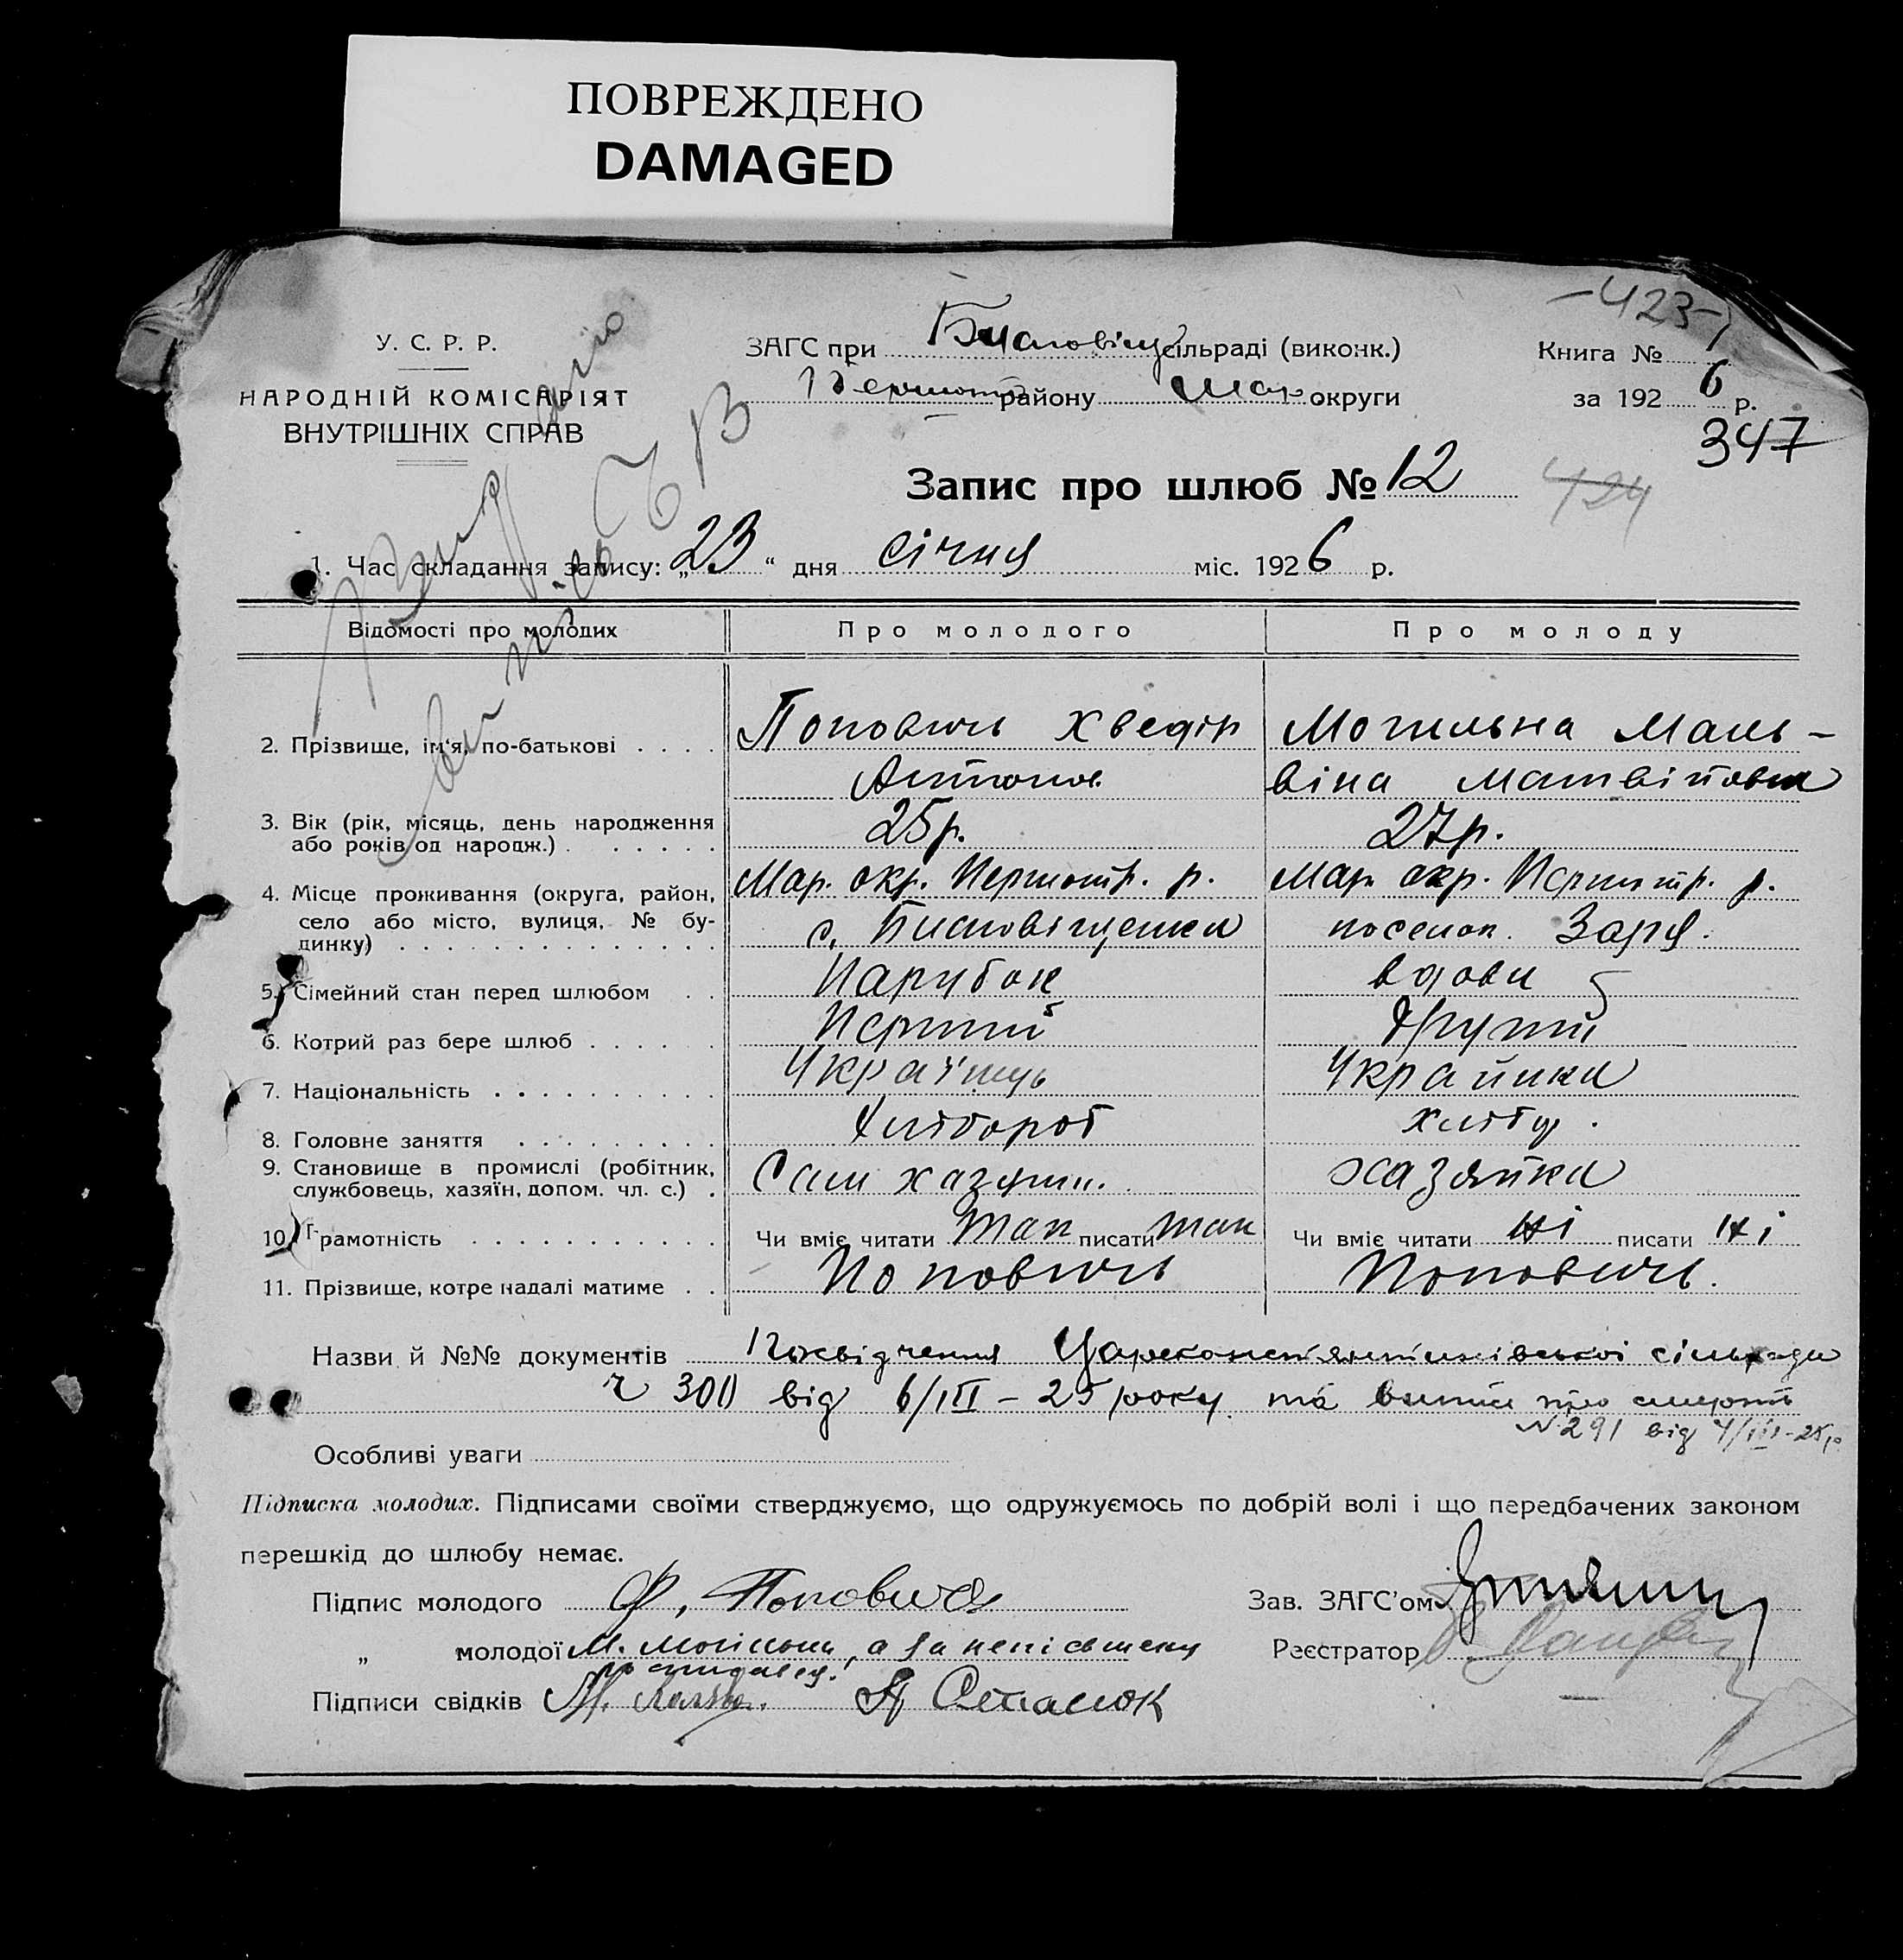 ПОВРЕЖДЕНО
DAMAGED
-423-
У. С. Р. Р.
НАРОДНІЙ КОМІСАРІЯТ
ВНУТРІШНІХ СПРАВ
ЗАГС при сільраді (виконк.)
району Мар округи
Книга №
за 1926 р.
347
424
Запис про шлюб № 12
1. Час складання запису: „23“ дня січня міс. 1926 р.
Відомості про молодих Про молодого Про молоду
2. Прізвище, ім'я, по-батькові . . . . Поповичь Хведір Могильна Маль-
Антонов. віна Матвіївна
3. Вік (рік, місяць, день народження
або років од народж.) . . . . . . 25р. 27р.
4. Місце проживання (округа, район, Мар. окр. Першотр. р. Мар. окр. Першотр. р.
село або місто, вулиця, № бу- с. посьолок. Заря.
динку)
5. Сімейний стан перед шлюбом . . Парубок вдова
6. Котрий раз бере шлюб . . . . . . Перший другий
7. Національність . . . . . . . . . . Україньць Українка
8. Головне заняття . . . . . . . . . Хлібороб хлібор.
9. Становище в промислі (робітник,
службовець, хазяїн, допом. чл. с.) . Сам хазяин. хазяйка
10. Грамотність . . . . . . . . . . . Чи вміє читати так писати так Чи вміє читати ні писати ні
11. Прізвище, котре надалі матиме . . Поповичь Поповичь.
Назви й №№ документів Посвідчення сільради
ч 300 від 6/III - 25 року. та витяг про смерть
№ 291 від 4/III-25р.
Особливі уваги
Підписка молодих. Підписами своїми стверджуємо, що одружуємось по добрій волі і що передбачених законом
перешкід до шлюбу немає.
Підпис молодого Ф. Попович Зав. ЗАГС'ом
„ молодої М. Могильна, а за неписьменну Реєстратор
Підписи свідків